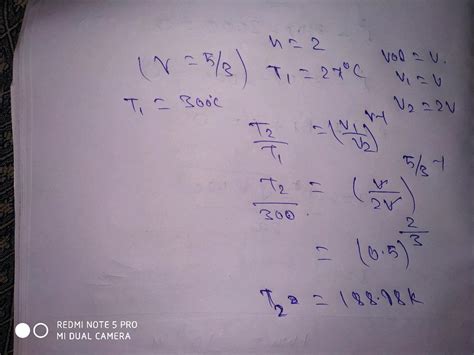 n = 2
(γ = 5/3) T₁ = 27°C vol = v.
T₁ = 300°C v₁ = v
v₂ = 2v
T₂/T₁ = (v₁/v₂)^γ-1
T₂/300 = (v/2v)^5/3-1
= (0.5)^2/3
T₂ = 188.98k
REDMI NOTE 5 PRO
MI DUAL CAMERA